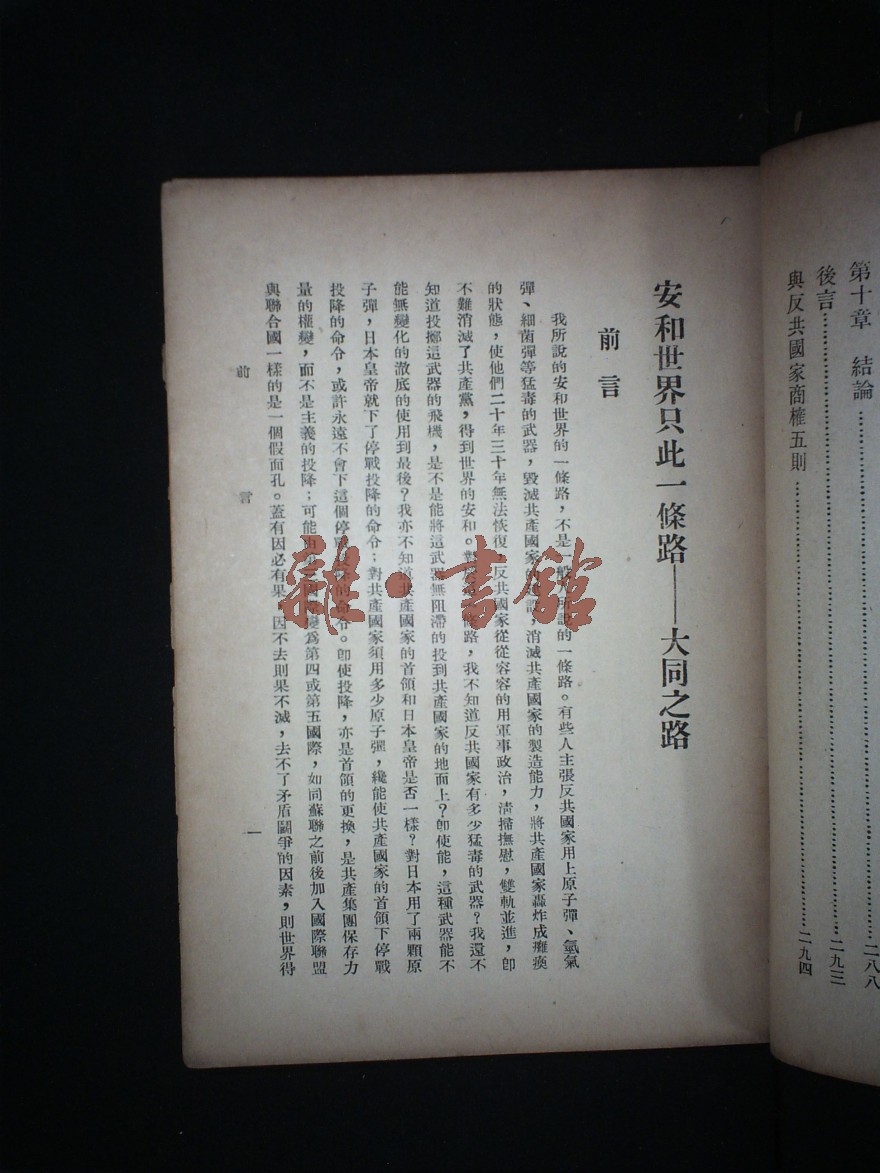 第十章　結論…………二八八
後言…………二九三
與反共國家商榷五則…………二九四
安和世界只此一條路——大同之路
前言
我所說的安和世界的一條路，不是一般人所說的一條路。有些人主張反共國家用上原子彈、氫氣
彈、細菌彈等猛毒的武器，毀滅共產國家的建設，消滅共產國家的製造能力，將共產國家轟炸成癱瘓
的狀態，使他們二十年三十年無法恢復，反共國家從從容容的用軍事政治，清掃撫慰，雙軌並進，卽
不難消滅了共產黨，得到世界的安和。對於這一條路，我不知道反共國家有多少猛毒的武器？我還不
知道投擲這武器的飛機，是不是能將這武器無阻滯的投到共產國家的地面上？卽使能，這種武器能不
能無變化的澈底的使用到最後？我亦不知道共產國家的首領和日本皇帝是否一樣？對日本用了兩顆原
子彈，日本皇帝就下了停戰投降的命令；對共產國家須用多少原子彈，纔能使共產國家的首領下停戰
投降的命令，或許永遠不會下這個停戰投降的命令。卽使投降，亦是首領的更換，是共產集團保存力
量的權變，而不是主義的投降；可能由第三國際變爲第四或第五國際，如同蘇聯之前後加入國際聯盟
與聯合國一樣的是一個假面孔。蓋有因必有果，因不去則果不滅，去不了矛盾鬭爭的因素，則世界得
前言
一
雜·書館